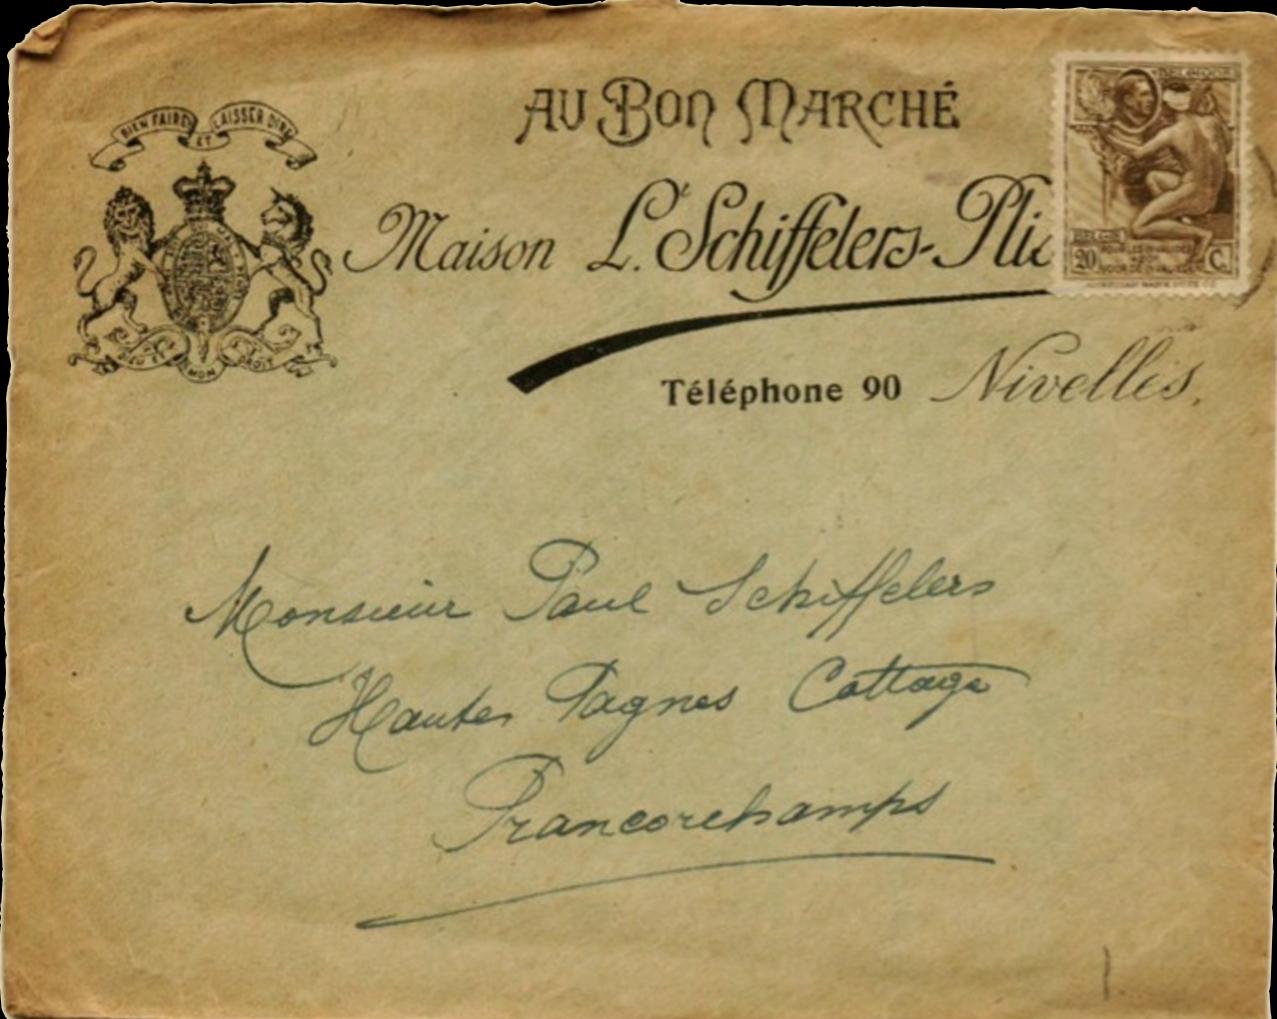 BIEN FAIRE ET LAISSER DIRE
AU BON MARCHÉ
Maison Lt. Schiffelers-Plis
DIEU ET MON DROIT
BELGIQUE
20 C.
Téléphone 90 Nivelles.
Monsieur Paul Schiffelers
Hautes Fagnes Cottage
Francorchamps